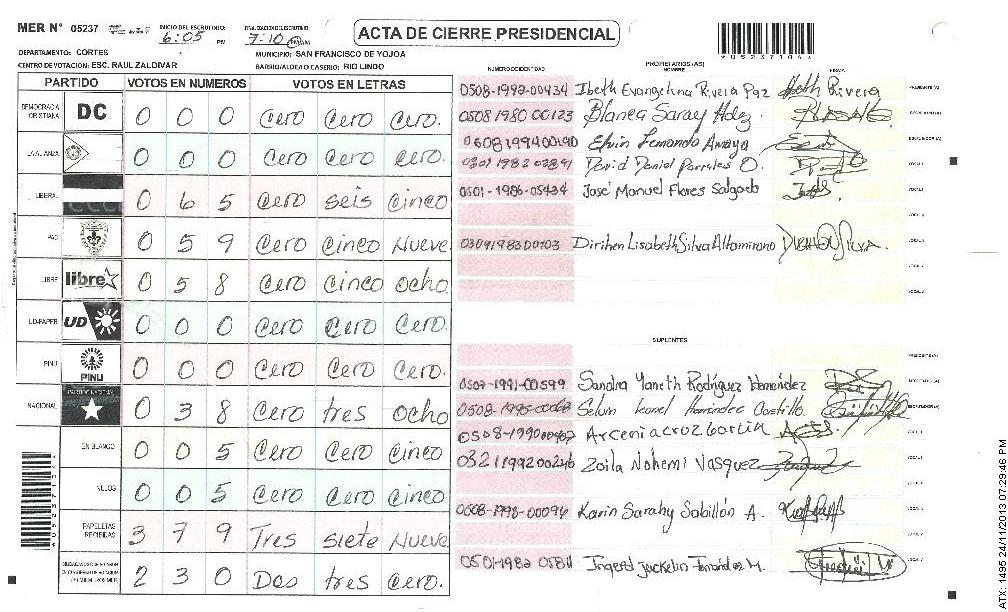 MER N° 05237
INICIO DEL ESCRUTINIO: 6:05 PM
FINALIZACION DEL ESCRUTINIO: 7:10 PM
ACTA DE CIERRE PRESIDENCIAL
*05237104*
DEPARTAMENTO: CORTES
MUNICIPIO: SAN FRANCISCO DE YOJOA
CENTRO DE VOTACION: ESC. RAUL ZALDIVAR
BARRIO/ALDEA O CASERIO: RIO LINDO
PARTIDO VOTOS EN NUMEROS VOTOS EN LETRAS
DEMOCRACIA CRISTIANA DC 0 0 0 Cero Cero Cero.
LA ALIANZA 0 0 0 Cero Cero Cero.
LIBERAL 0 6 5 Cero seis cinco
PAC 0 5 9 Cero cinco Nueve
LIBRE libre 0 5 8 Cero cinco ocho
UD-FAPER UD 0 0 0 Cero Cero Cero.
PINU PINU 0 0 0 Cero Cero Cero.
NACIONAL 0 3 8 Cero tres ocho
EN BLANCO 0 0 5 Cero Cero cinco
NULOS 0 0 5 Cero Cero cinco
PAPELETAS RECIBIDAS 3 7 9 Tres siete Nueve
2 3 0 Dos tres Cero.
NUMERO DE IDENTIDAD PROPIETARIOS (AS) NOMBRE FIRMA
0508-1992-00434 Ibeth Evangelina Rivera Paz Ibeth Rivera PRESIDENTE (A)
0508 1980 00123 Blanca Saray Hdez. SECRETARIO (A)
0608199400190 Elvin Fernando Amaya ESCRUTADOR (A)
0301 1982 03891 David Daniel Parrales O. VOCAL I
0501-1986-05434 José Manuel Flores Salgado VOCAL II
0309198300103 Dirihen Lisabeth Silva Altamirano
SUPLENTES
PRESIDENTE (A)
0507-1991-00599 Sandra Yaneth Rodríguez Hernández SECRETARIO (A)
0508-1995-00068 Selvin Leonel Hernández Castillo ESCRUTADOR (A)
0508-1990-00467 Arcenia cruz Garcia
0321199200246 Zoila Nohemi Vasquez
0508-1998-00094 Karin Sarahy Sabillón A.
0501-1982 0581 Ingerd Jackelin Fernández M.
ATX: 1495 24/11/2013 07:29:46 PM